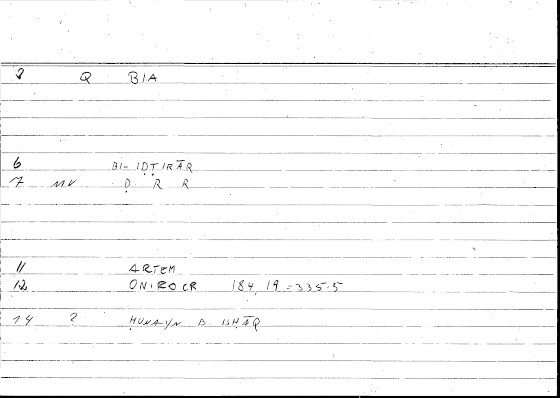 2 Q BIA
6 BI-IḌṬIRĀR
7 MV Ḍ R R
11 ARTEM
12 ONIROCR 184,19=335.5
14 ? ḤUNAYN B ISḤĀQ